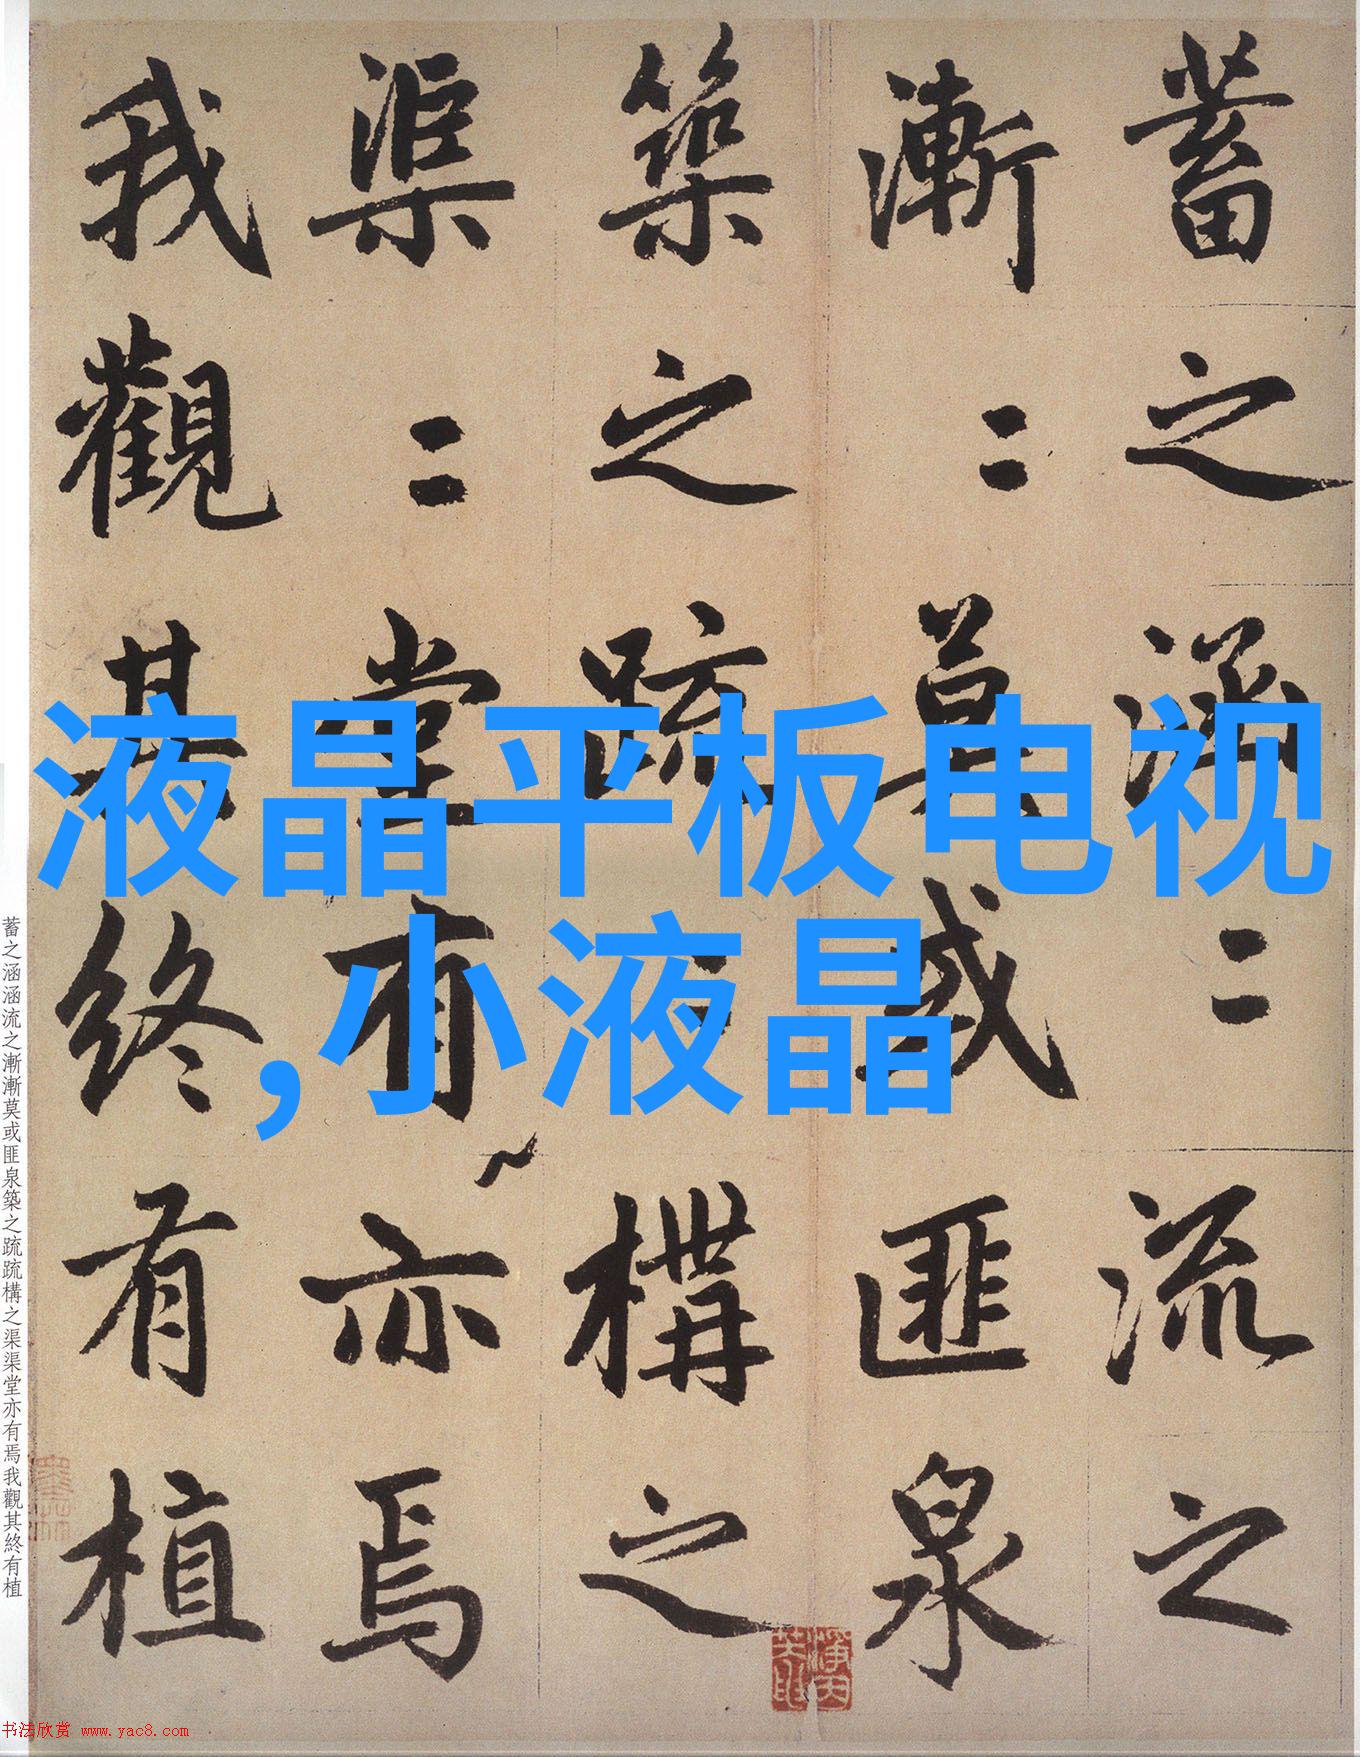 蓄之涵〻流之
漸〻莫或匪泉
築之疏〻構之
渠〻堂有亦焉
我觀其終有植
液晶平板电视
,小液晶
蓄之涵涵流之漸漸莫或匪泉築之疏疏構之渠渠堂亦有焉我觀其終有植
书法欣赏 www.yac8.com